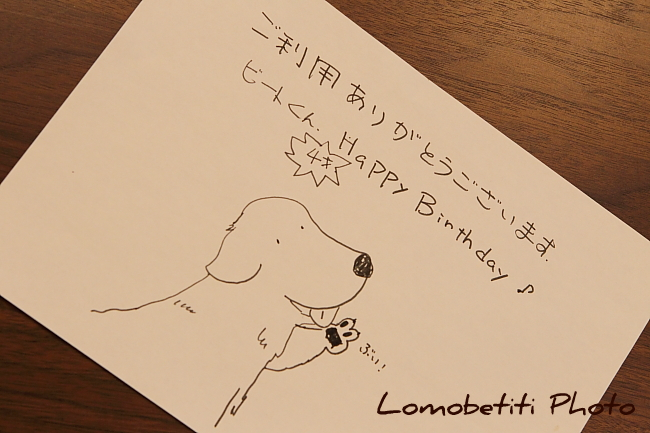 ご利用ありがとうございます.
ビートくん. HAPPY Birthday ♪
4才
ぶい!
Lomobetiti Photo